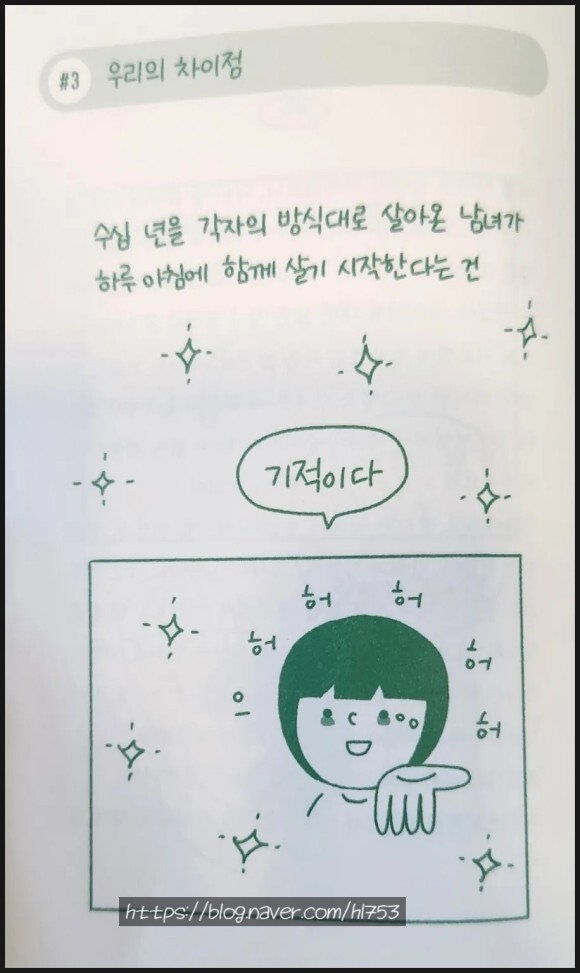 #3 우리의 차이점
수십 년을 각자의 방식대로 살아온 남녀가
하루 아침에 함께 살기 시작한다는 건
기적이다
으
허
허
허
허
허
https://blog.naver.com/hl753